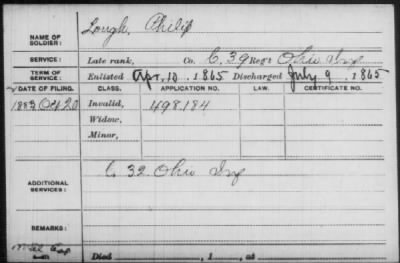 NAME OF SOLDIER: Lough, Philip
SERVICE: Late rank, Co. C. 39 Reg't Ohio Inf
TERM OF SERVICE: Enlisted Apr. 10. 1865 Discharged July 9. 1865
DATE OF FILING. CLASS. APPLICATION NO. LAW. CERTIFICATE NO.
1883 Oct 20 Invalid, 498.184
Widow,
Minor,
ADDITIONAL SERVICES: C 32 Ohio Inf
REMARKS:
Died , 1 , at